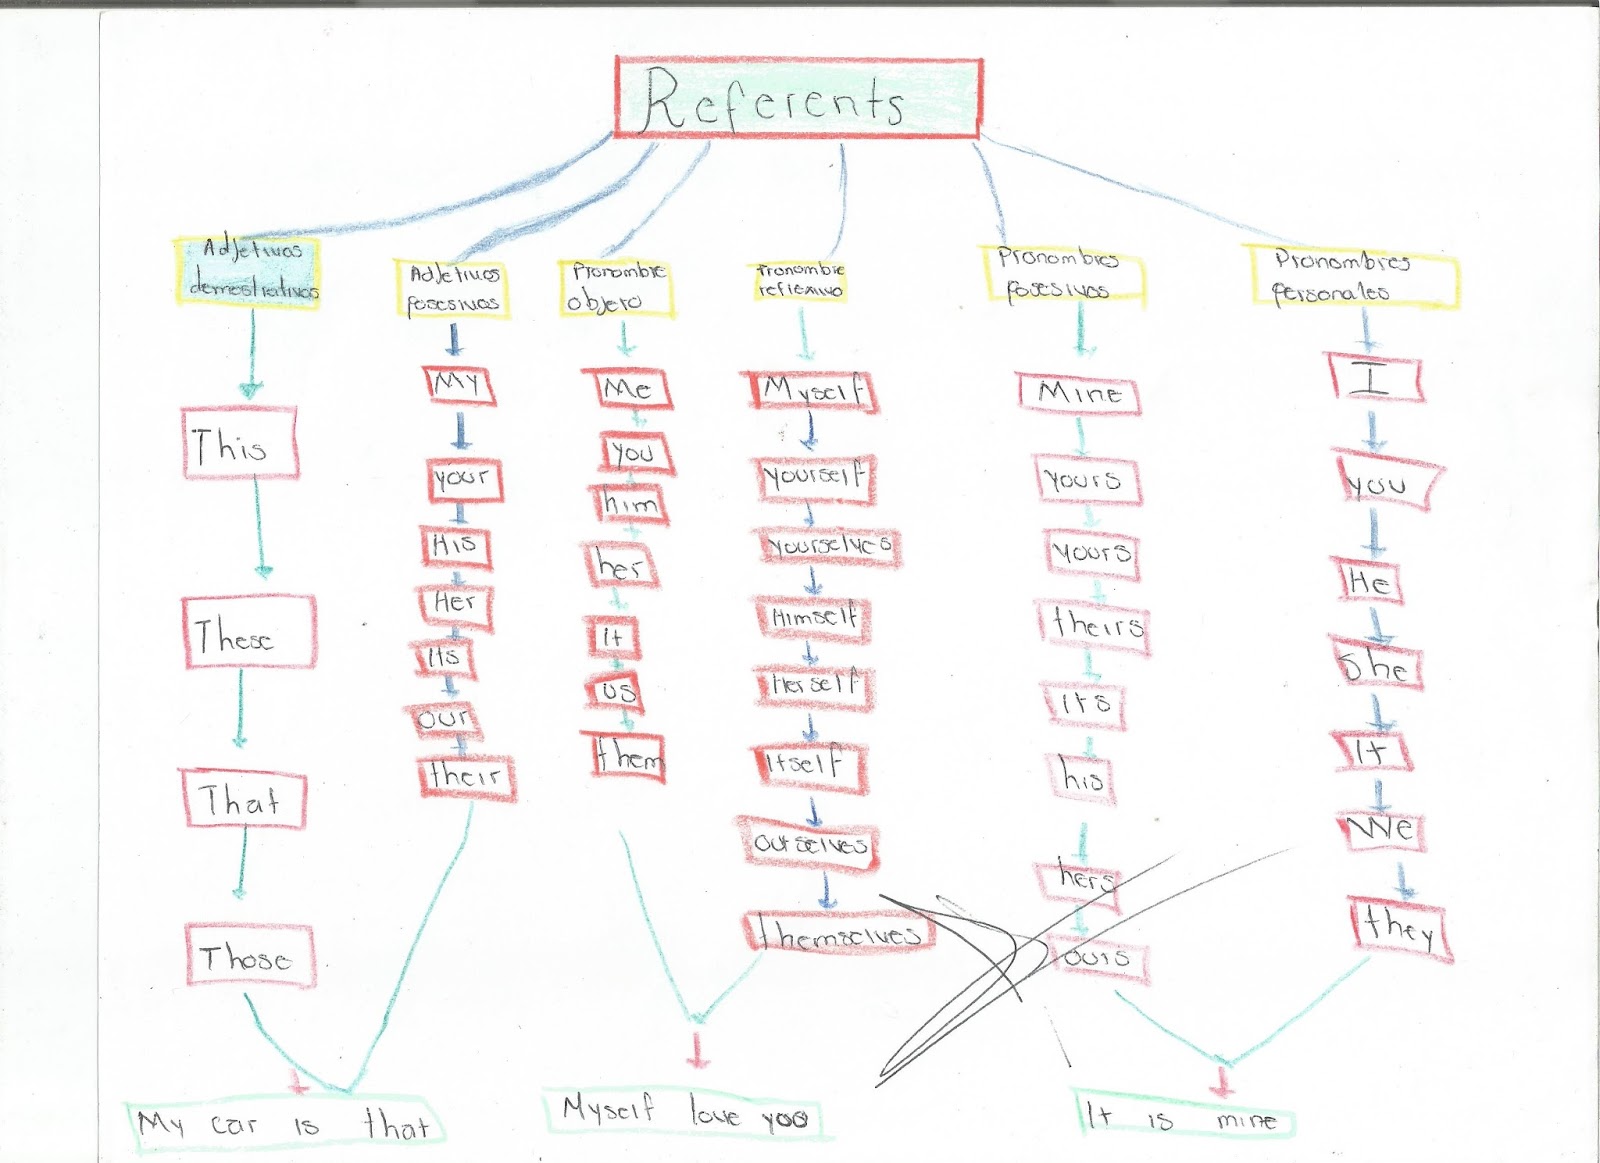 Referents
Adjetivos
demostrativos
This
These
That
Those
Adjetivos
posesivos
My
your
His
Her
Its
our
their
Pronombre
objeto
Me
you
him
her
It
us
them
Pronombre
reflexivo
Myself
yourself
yourselves
Himself
Herself
Itself
ourselves
themselves
Pronombres
posesivos
Mine
yours
yours
theirs
Its
his
hers
ours
Pronombres
personales
I
you
He
She
It
We
they
My car is that
Myself love you
It is mine